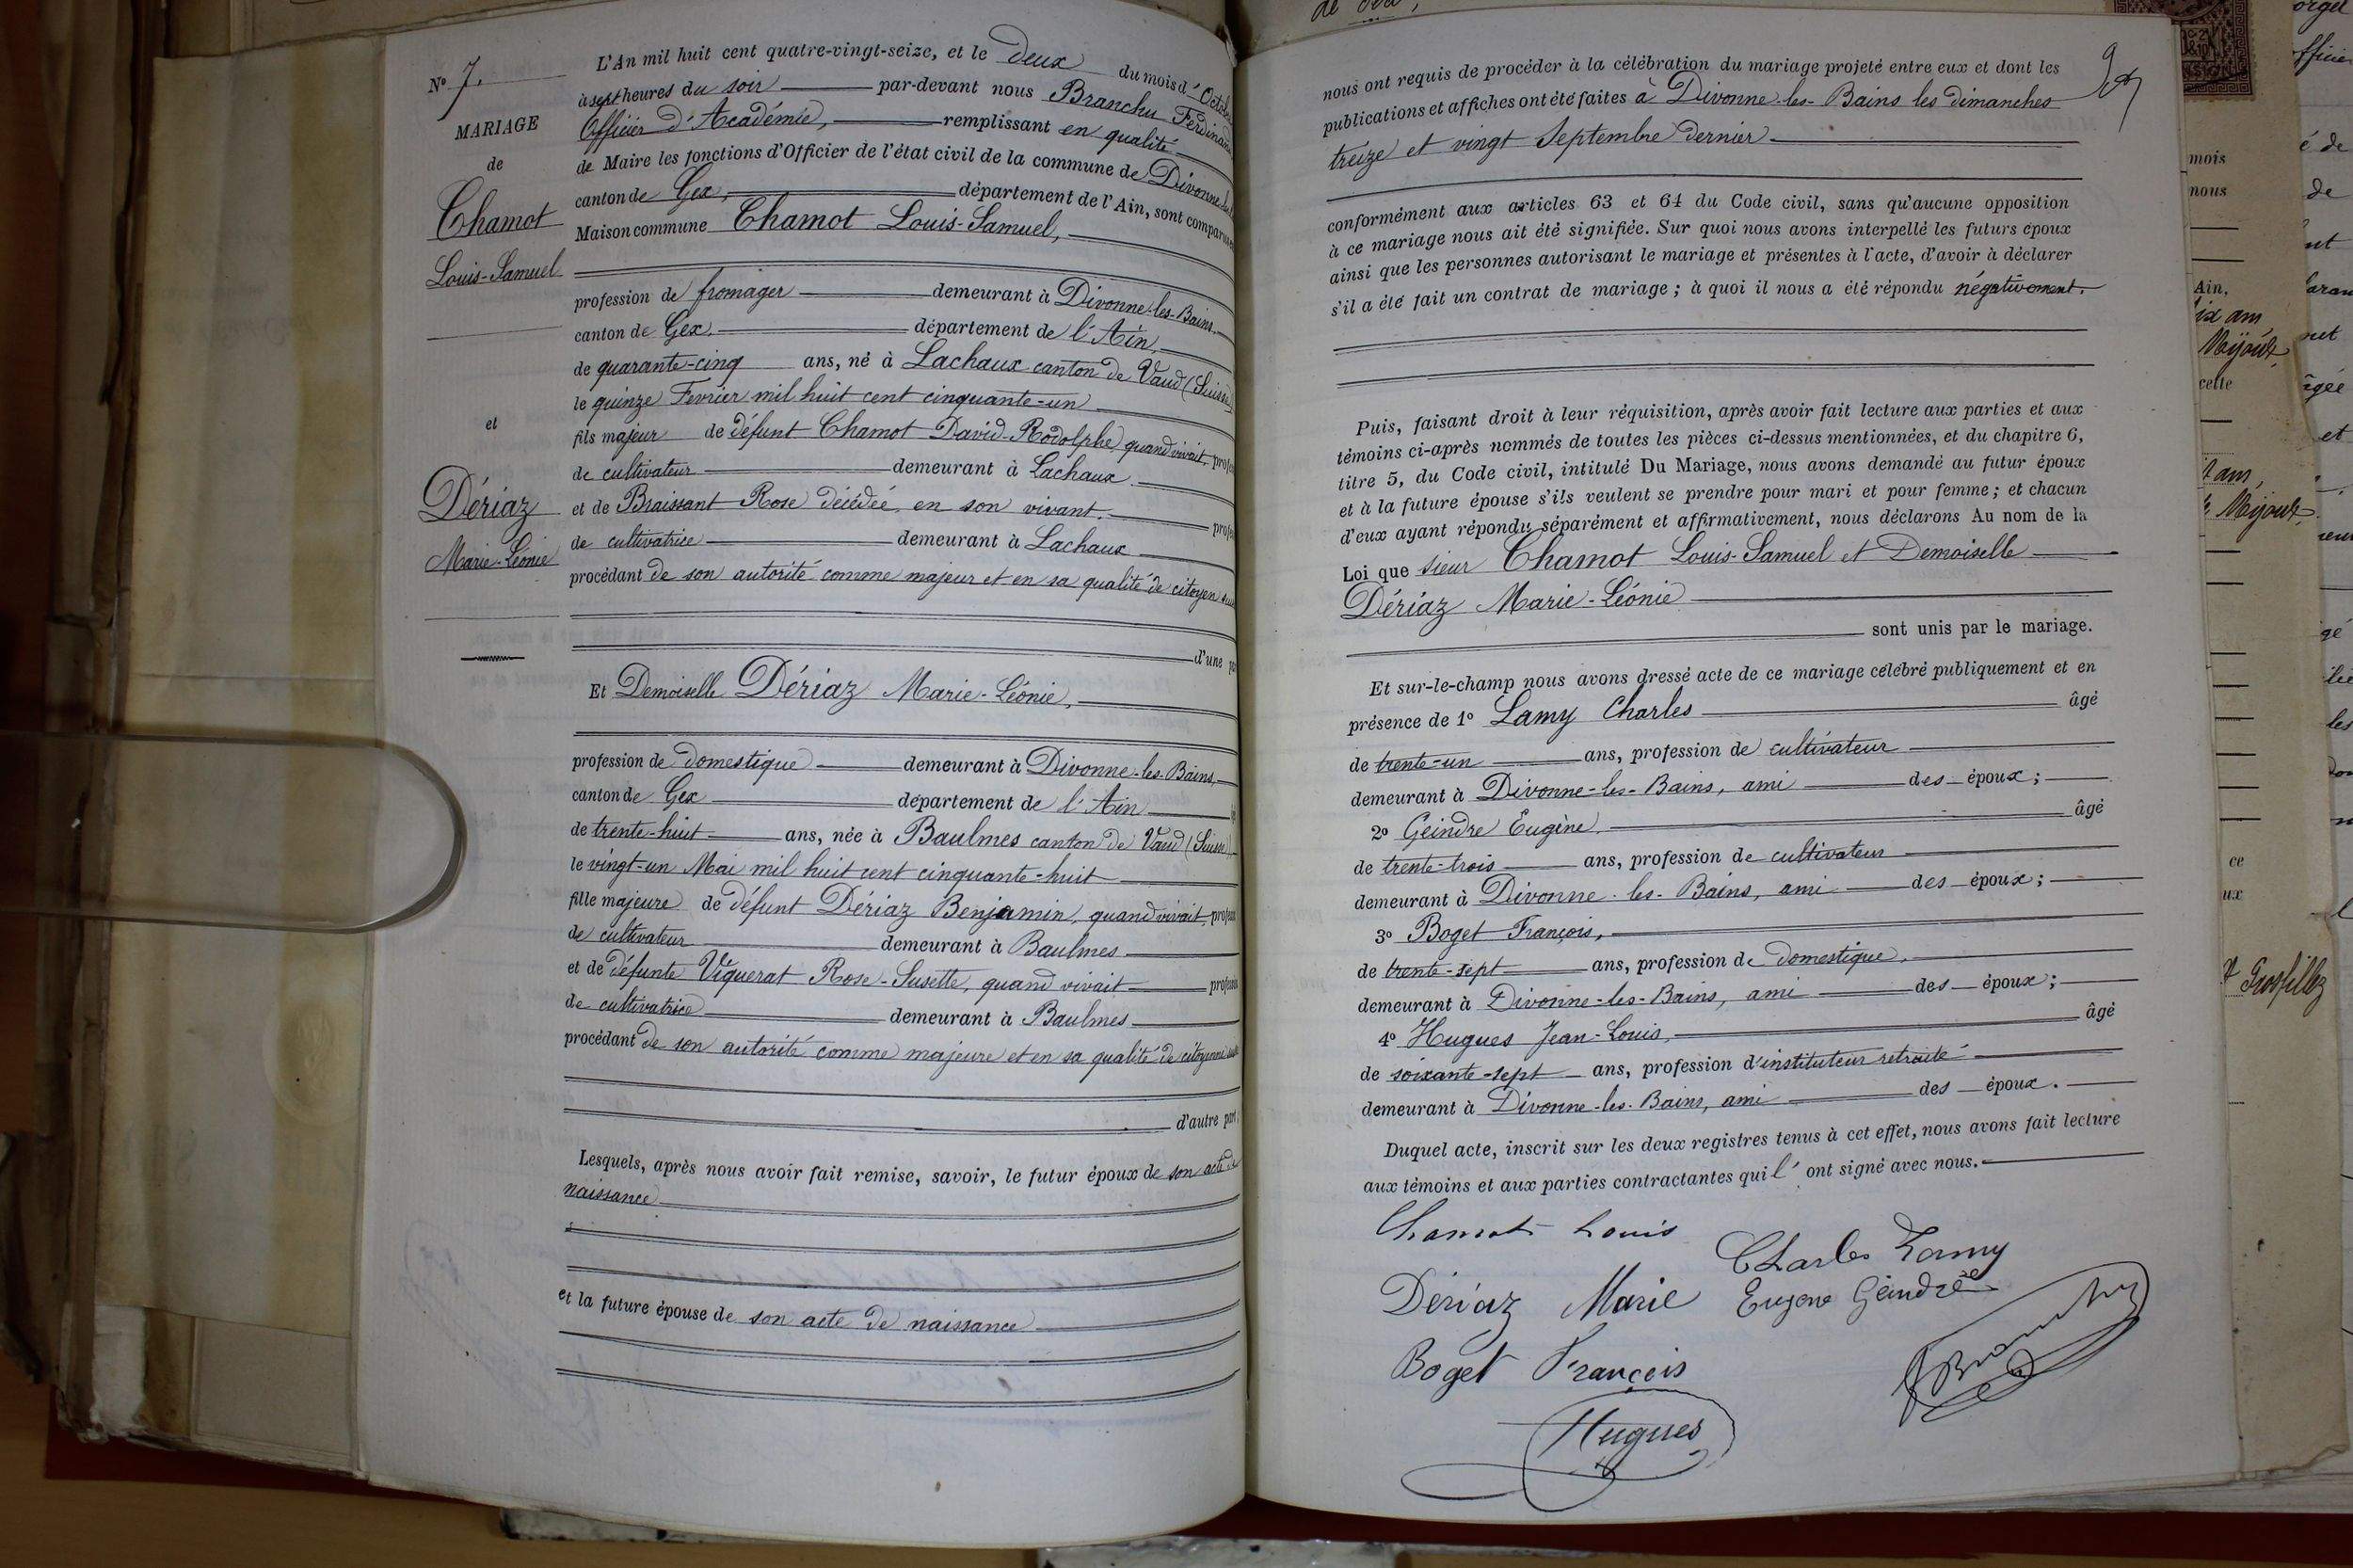 N° 7.
MARIAGE
de
Chamot
Louis-Samuel
et
Dériaz
Marie-Léonie
L'An mil huit cent quatre-vingt-seize, et le deux du mois d'Octobre
à sept heures du soir par-devant nous Branchu Ferdinand
Officier d'Académie, remplissant en qualité
de Maire les fonctions d'Officier de l'état civil de la commune de Divonne-les-
canton de Gex, département de l'Ain, sont comparus
Maison commune Chamot Louis-Samuel,
profession de fromager demeurant à Divonne-les-Bains,
canton de Gex, département de l'Ain,
de quarante-cinq ans, né à Lachaux canton de Vaud (Suisse)
le quinze Fevrier mil huit cent cinquante-un
fils majeur de défunt Chamot David-Rodolphe, quand vivait, profes
de cultivateur demeurant à Lachaux
et de Braissant Rose décédée, en son vivant. profes
de cultivatrice demeurant à Lachaux
procédant de son autorité comme majeur et en sa qualité de citoyen
d'une
Et Demoiselle Dériaz Marie-Léonie,
profession de domestique demeurant à Divonne-les-Bains,
canton de Gex département de l'Ain
de trente-huit ans, née à Baulmes canton de Vaud (Suisse)
le vingt-un Mai mil huit cent cinquante-huit
fille majeure de défunt Dériaz Benjamin, quand vivait, profess
de cultivateur demeurant à Baulmes
et de défunte Viquerat Rose-Susette, quand vivait profession
de cultivatrice demeurant à Baulmes
procédant de son autorité comme majeure et en sa qualité de citoyenne
d'autre part.
Lesquels, après nous avoir fait remise, savoir, le futur époux de son acte de
naissance
et la future épouse de son acte de naissance
nous ont requis de procéder à la célébration du mariage projeté entre eux et dont les
publications et affiches ont été faites à Divonne-les-Bains les dimanches
treize et vingt Septembre dernier
conformément aux articles 63 et 64 du Code civil, sans qu'aucune opposition
à ce mariage nous ait été signifiée. Sur quoi nous avons interpellé les futurs époux
ainsi que les personnes autorisant le mariage et présentes à l'acte, d'avoir à déclarer
s'il a été fait un contrat de mariage ; à quoi il nous a été répondu négativement.
Puis, faisant droit à leur réquisition, après avoir fait lecture aux parties et aux
témoins ci-après nommés de toutes les pièces ci-dessus mentionnées, et du chapitre 6,
titre 5, du Code civil, intitulé Du Mariage, nous avons demandé au futur époux
et à la future épouse s'ils veulent se prendre pour mari et pour femme ; et chacun
d'eux ayant répondu séparément et affirmativement, nous déclarons Au nom de la
Loi que sieur Chamot Louis-Samuel et Demoiselle
Dériaz Marie-Léonie
sont unis par le mariage.
Et sur-le-champ nous avons dressé acte de ce mariage célébré publiquement et en
présence de 1° Lamy Charles âgé
de trente-un ans, profession de cultivateur
demeurant à Divonne-les-Bains, ami des époux ;
2° Geindre Eugène, âgé
de trente-trois ans, profession de cultivateur
demeurant à Divonne-les-Bains, ami des époux ;
3° Boget François,
de trente-sept ans, profession de domestique,
demeurant à Divonne-les-Bains, ami des époux ;
4° Hugues Jean-Louis, âgé
de soixante-sept ans, profession d'instituteur retraité
demeurant à Divonne-les-Bains, ami des époux.
Duquel acte, inscrit sur les deux registres tenus à cet effet, nous avons fait lecture
aux témoins et aux parties contractantes qui l'ont signé avec nous.
Chamot Louis
Charles Lamy
Dériaz Marie
Eugène Geindre
Boget François
Branchu
Hugues
mois
nous
Ain,
Mijoux
cette
Mijoux
ce
ux
Grosfillez